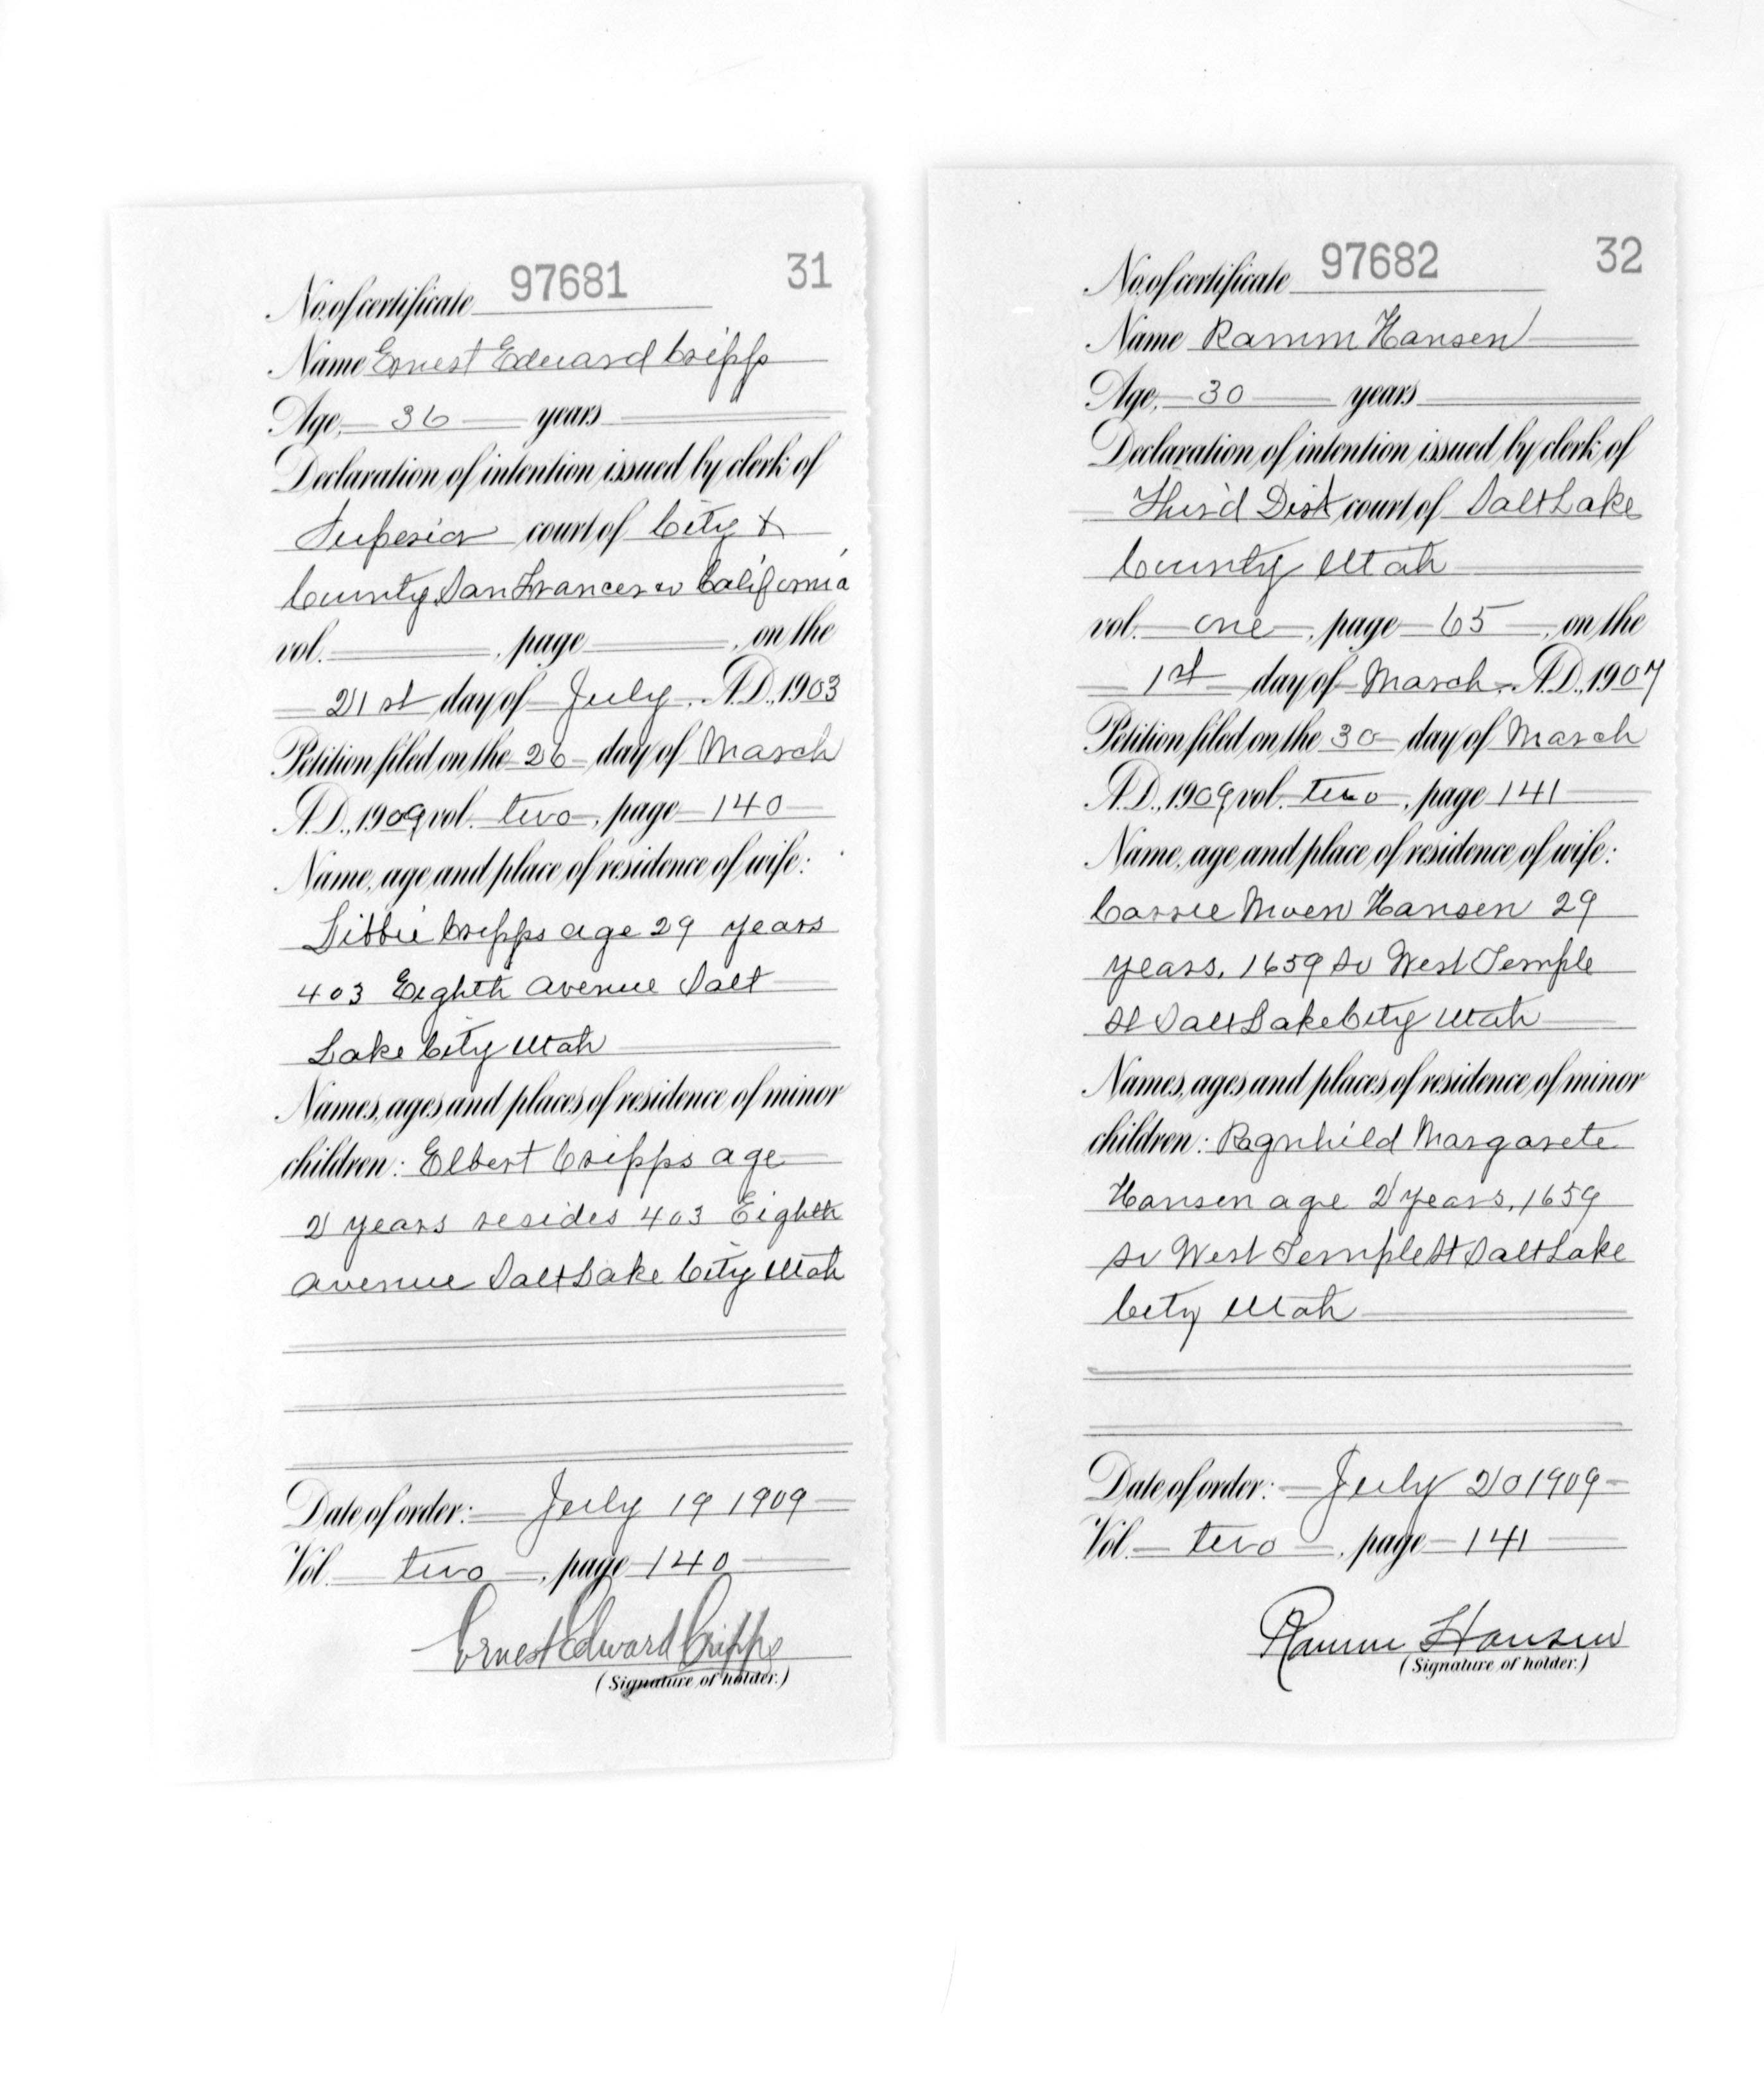 No. of certificate 97681 31
Name Ernest Edward Cripps
Age, 36 years
Declaration of intention issued by clerk of
Superior court of City &
County San Francisco California
vol. , page , on the
21st day of July, A.D., 1903
Petition filed on the 26 day of March
A.D., 1909 vol. two, page 140
Name, age and place of residence of wife:
Libbie Cripps age 29 years
403 Eighth Avenue Salt
Lake City Utah
Names, ages and places of residence of minor
children: Elbert Cripps age
2 years resides 403 Eighth
Avenue Salt Lake City Utah
Date of order: July 19 1909
Vol. two, page 140
Ernest Edward Cripps
(Signature of holder.)
No. of certificate 97682 32
Name Ramm Hansen
Age, 30 years
Declaration of intention issued by clerk of
Third Dist court of Salt Lake
County Utah
vol. one, page 65, on the
1st day of March, A.D., 1907
Petition filed on the 30 day of March
A.D., 1909 vol. two, page 141
Name, age and place of residence of wife:
Carrie Moen Hansen 29
years, 1659 So West Temple
St Salt Lake City Utah
Names, ages and places of residence of minor
children: Ragnhild Margarete
Hansen age 2 years, 1659
So West Temple St Salt Lake
City Utah
Date of order: July 20 1909
Vol. two, page 141
Ramm Hansen
(Signature of holder.)